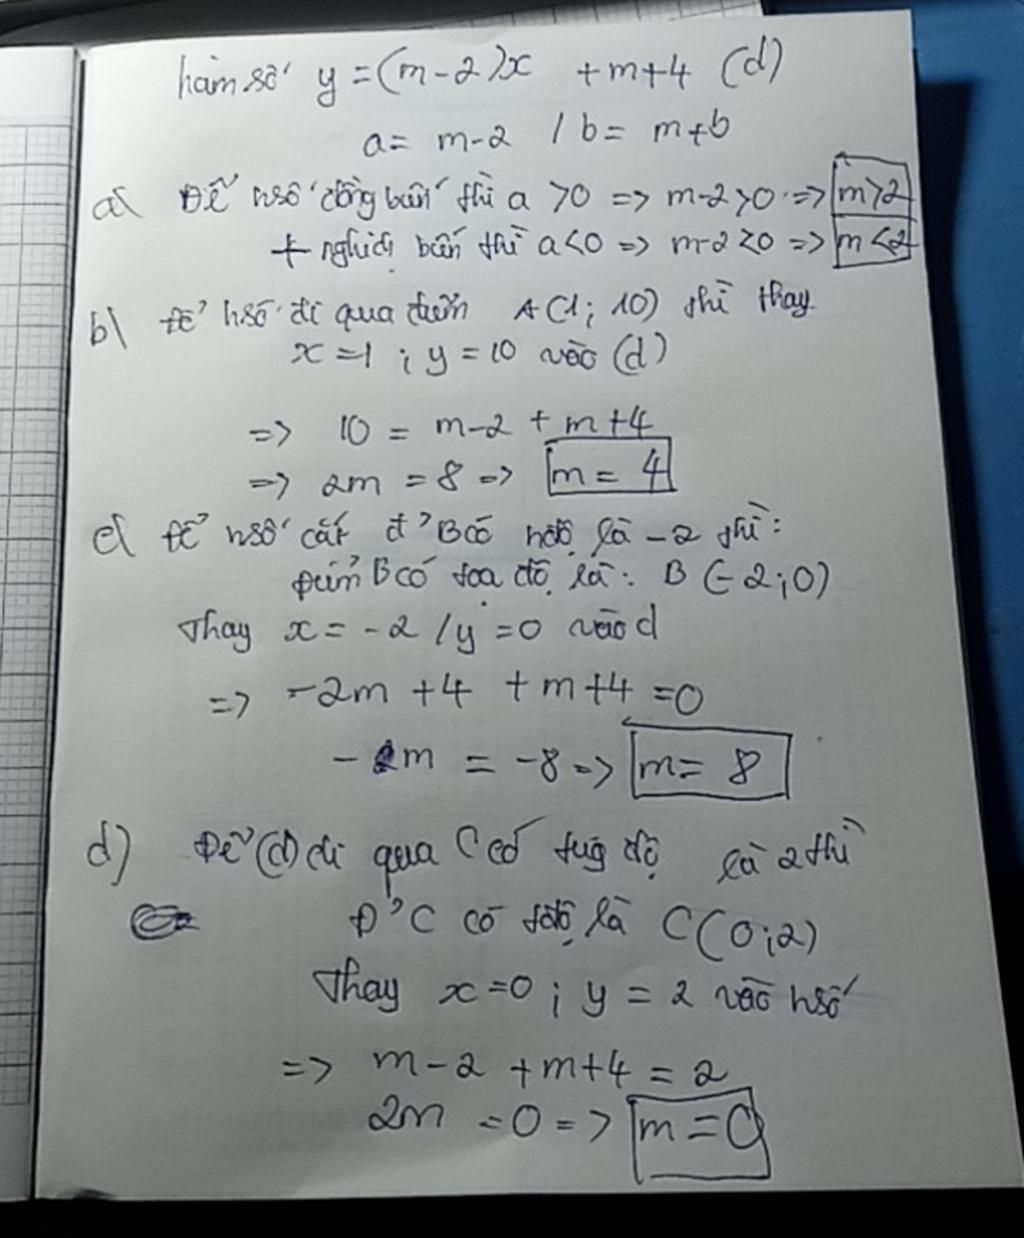 hàm số y = (m-2)x + m+4 (d)
a = m-2 / b = m+b
a) Để hsố đồng biến thì a >0 => m-2>0 => m>2
+ nghịch biến thì a<0 => m-2<0 => m<2
b) Để hsố đi qua điểm A(1; 10) thì thay
x = 1 ; y = 10 vào (d)
=> 10 = m-2 + m+4
=> 2m = 8 => m = 4
c) Để hsố cắt đ' B có hđộ là -2 thì:
Điểm B có tọa độ là: B (-2;0)
Thay x = -2 / y = 0 vào d
=> -2m +4 + m+4 =0
- m = -8 => m = 8
d) Để (d) đi qua C có tug độ là 2 thì
Đ' C có tđộ là C(0;2)
Thay x=0 ; y = 2 vào hsố
=> m-2 +m+4 = 2
2m =0 => m=0